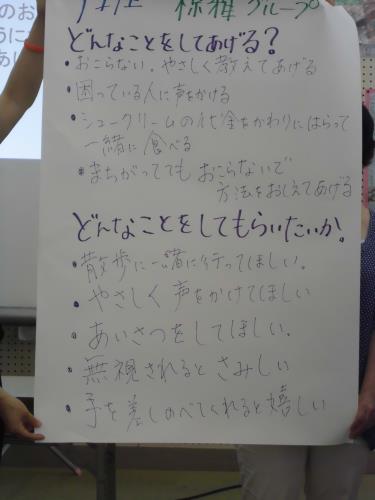 グループ
どんなことをしてあげる?
・おこらない、やさしく教えてあげる
・困っている人に声をかける
・シュークリームのお金をかわりにはらって
一緒に食べる
・まちがってても おこらないで
方法をおしえてあげる
どんなことをしてもらいたいか。
・散歩に一緒に行ってほしい。
・やさしく声をかけてほしい
・あいさつをしてほしい。
・無視されるとさみしい
・手を差しのべてくれると嬉しい